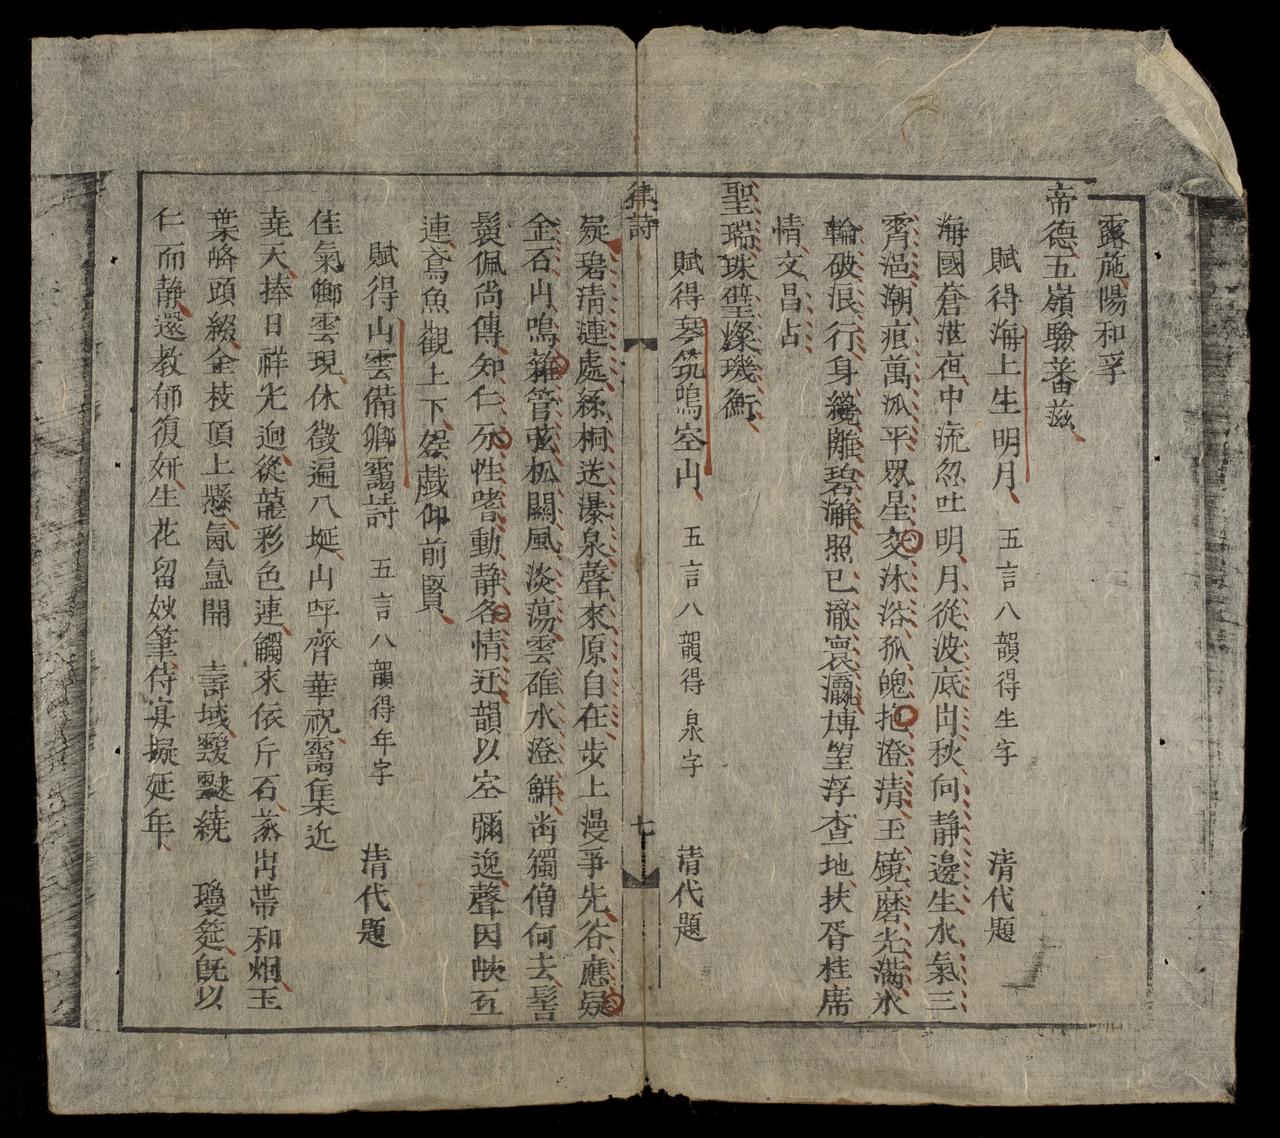 露施陽和孚
帝德五嶺驗蕃茲
賦得海上生明月 五言八韻得生字 清代題
海國蒼茫夜中流忽吐明月從波底出秋向靜邊生水氣三
霄浥潮痕萬派平眾星交沐浴孤魄抱澄清玉鏡磨光滿氷
輪破浪行身纔離碧澥照已澈寰瀛博望浮查地扶胥桂席
情文昌占
聖瑞珠璧燦璣衡
賦得琴筑鳴空山 五言八韻得泉字 清代題
律詩 七
凝碧清漣處絲桐送瀑泉聲來原自在步上漫爭先谷應疑
金石山鳴雜管弦松關風淡蕩雲碓水澄鮮齒獨僧何去髻
鬟佩尚傳知仁分性嗜動靜各情迁韻以空彌逸聲因峽五
連鳶魚觀上下娛戲仰前賢
賦得山雲備卿靄詩 五言八韻得年字 清代題
佳氣卿雲現休徵遍八埏山呼齊華祝靄集近
堯天捧日祥光迴從龍彩色連觸來依斤石蒸出帶和烟玉
葉峰頭綴金枝頂上懸氤氳開 壽域靉靆繞 瓊筵旣以
仁而靜還教郁復姸生花留妙筆侍宴擬延年